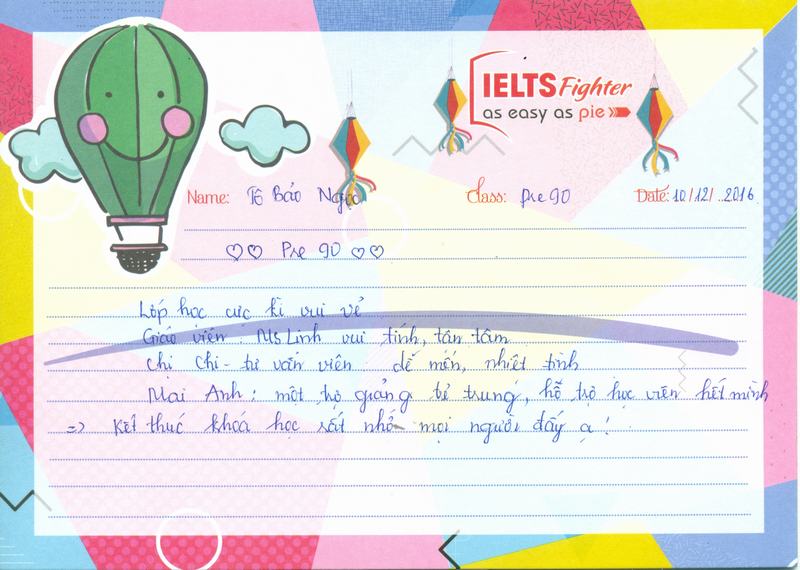 IELTS Fighter
as easy as pie
Name: Tô Bảo Ngọc Class: Pre 90 Date: 10/12/..2016
♡♡ Pre 90 ♡♡
Lớp học cực kì vui vẻ
Giáo viên: Ms Linh vui tính, tận tâm
Chị Chi - tư vấn viên dễ mến, nhiệt tình
Mai Anh: một trợ giảng tẻ trung, hỗ trợ học viên hết mình
=> Kết thúc khoá học rất nhớ mọi người đấy ạ!